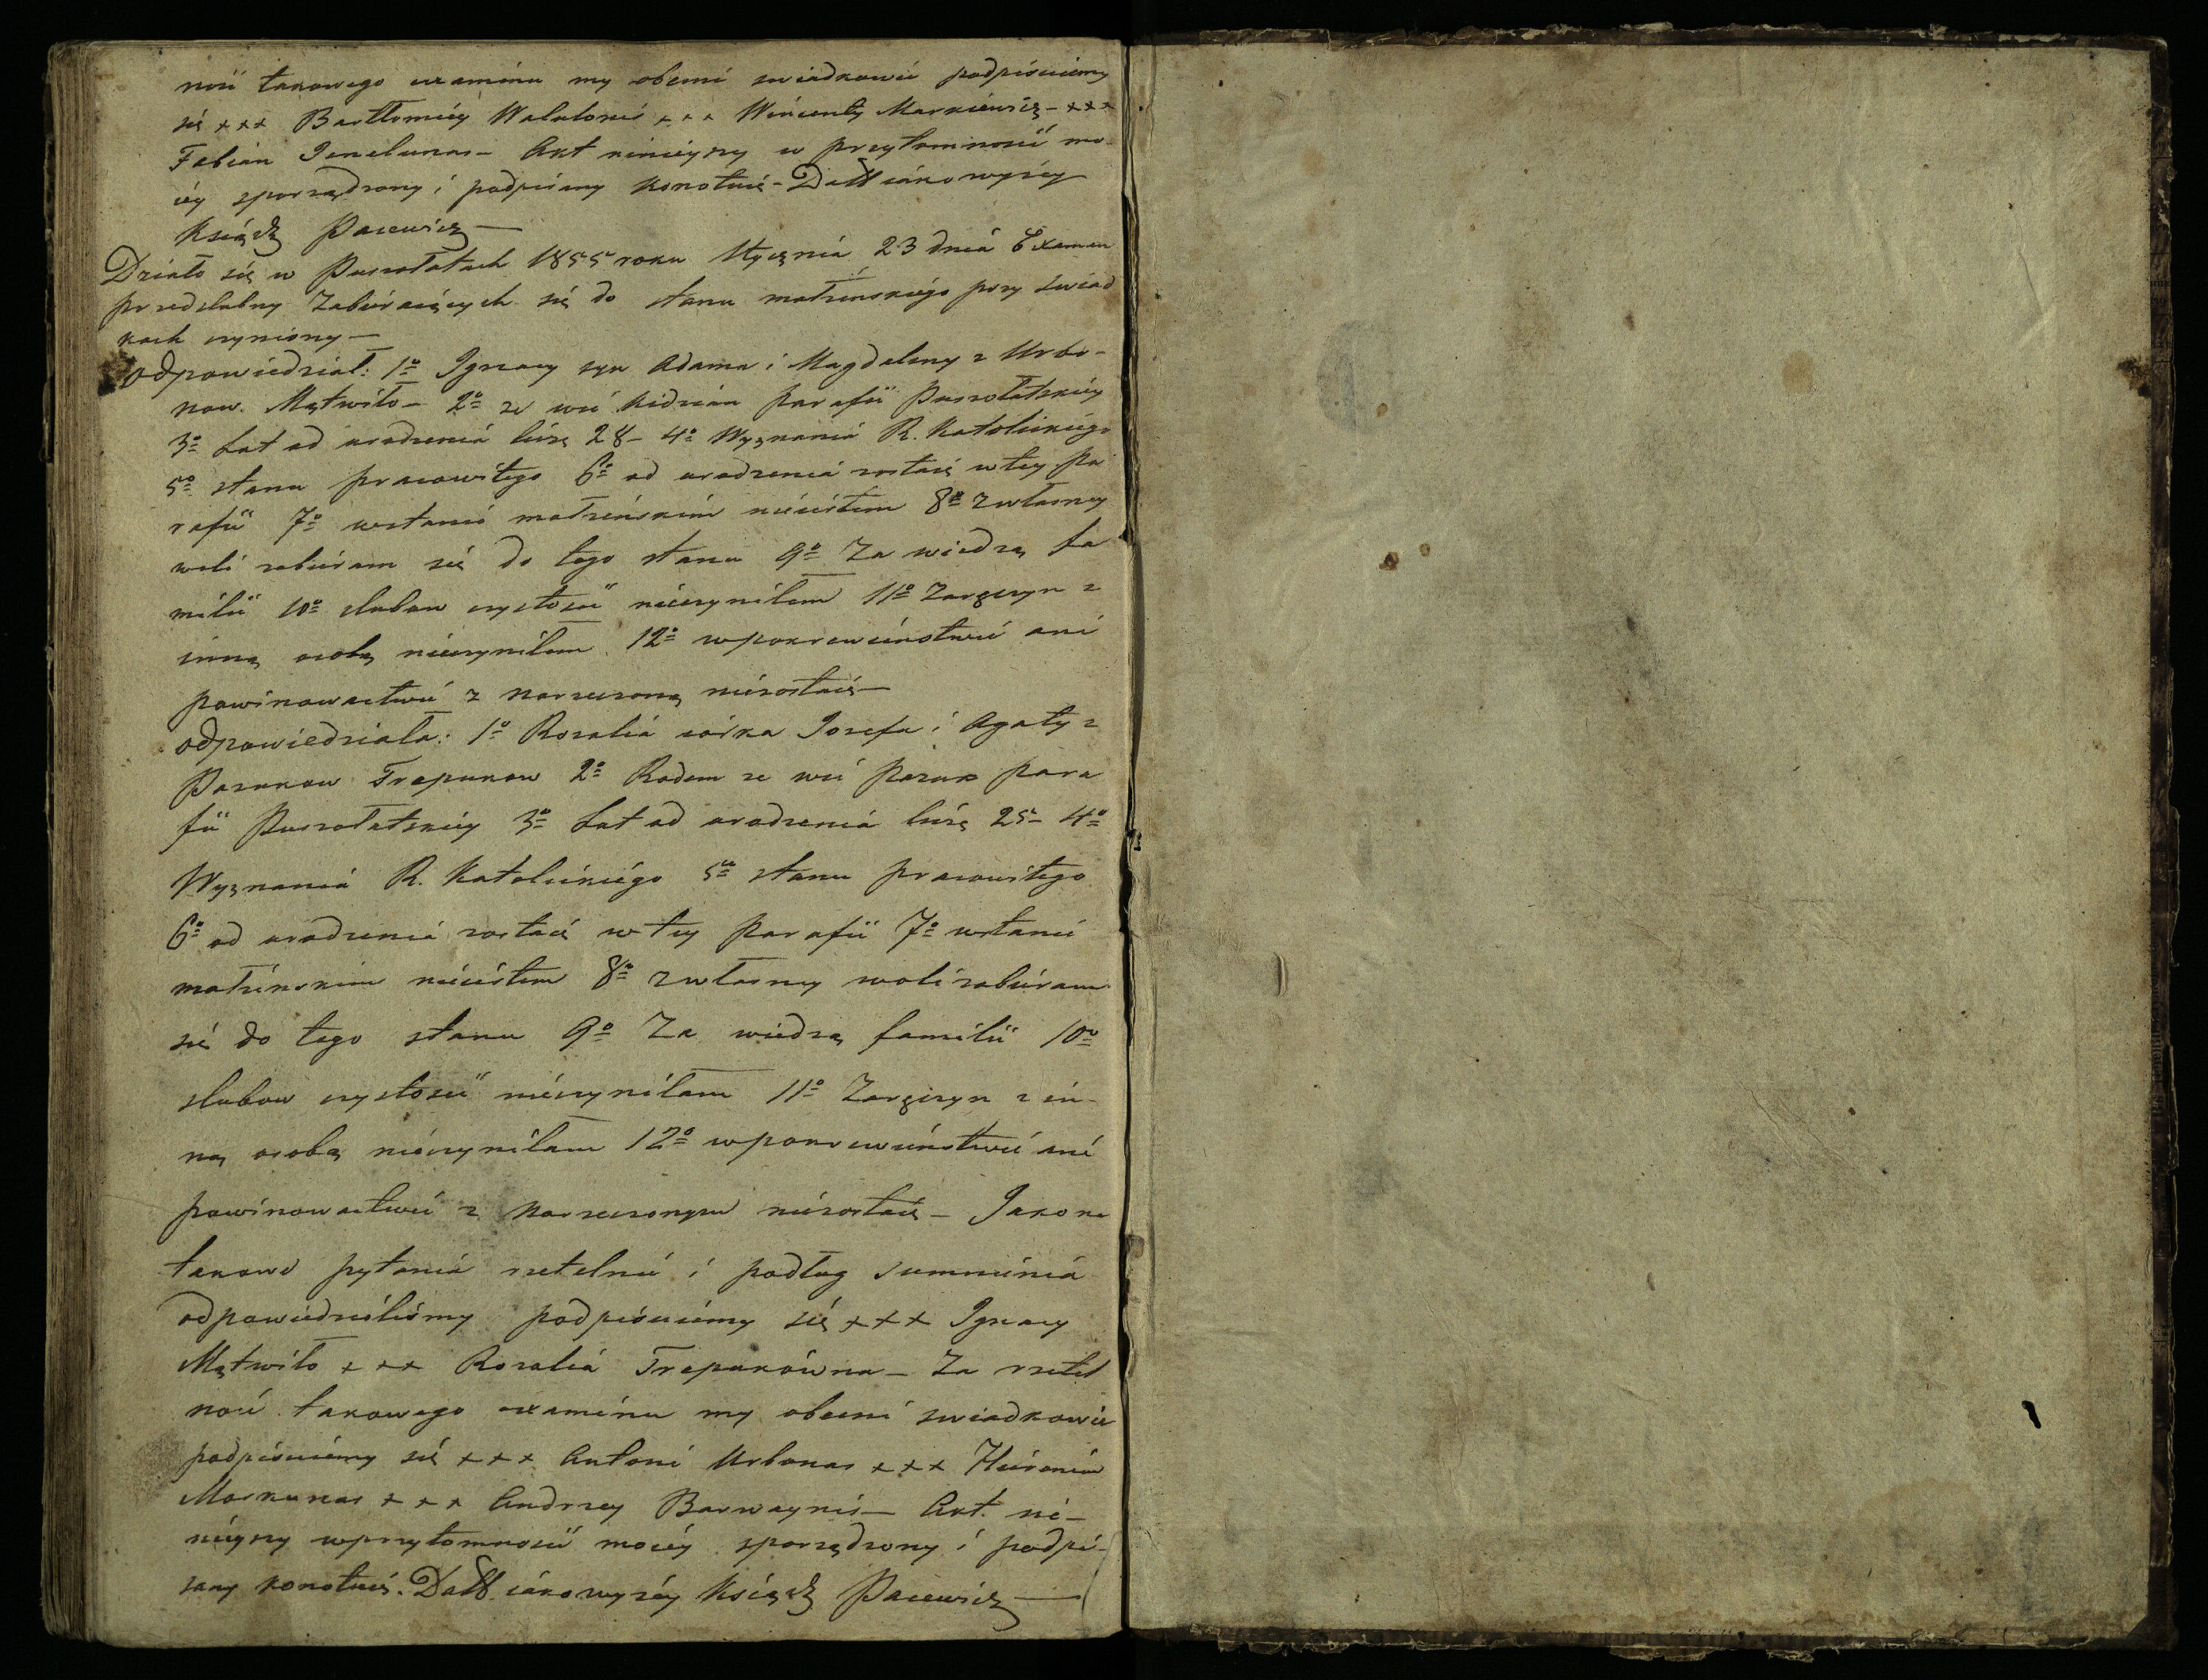 ność takowego examinu my obecni swiadkowie podpisuiemy
się +++ Bartłomiéy Walulonis +++ Wincenty Markiewicz - +++
Fabian Jenelunas - Akt ninieyszy w przytomności mo-
iéy sporządzony i podpisany konotuię - Datt iako wyżéy
Ksiądz Pacewicz —
Działo się w Puszołatach 1855 roku Stycznia 23 dnia Examen
przedslubny Zabieraiących się do stanu małżenskiégo przy świad
kach czyniony —
Odpowiedział: 1º Ignacy syn Adama i Magdaleny z Urbo-
now. Mątwiło - 2º ze wsi Kidzian parafii Puszołatskiéy
3º Lat od urodzenia liczę 28 - 4º Wyznania R. Katolickiégo
5º stanu pracowitego 6º od urodzenia zostaię w tey Pa
rafii 7º w stanie małżeńskim nieiéstem 8º z własney
woli zabieram się do tego stanu 9º Za wiedzą fa
milii 10º slubow czystości nieczyniłem 11º Zaręczyn z
inną osobą nieczyniłem 12º w pokrewieństwie ani
powinowactwie z narzeczoną niezostaię —
Odpowiedziała: 1º Rozalia córka Jozefa i Agaty z
Pazukow Trepunow 2º Rodem ze wsi Pazuk para
fii Puszołatskiéy 3º Lat od urodzenia liczę 25 - 4º
Wyznania R. Katolickiégo 5º stanu pracowitego
6º od urodzenia zostaię w tey Parafii 7º w stanie
małżénskim nieiéstem 8º z własney woli zabieram
się do tego stanu 9º Za wiedzą familii 10º
slubow czystości nieczyniłam 11º Zaręczyn z in-
ną osobą nieczyniłam 12º w pokrewieństwie ani
powinowactwie z Narzeczonym niezostaię - Jako na
takowe pytania rzetelnie i podług summienia
odpowiedzieliśmy podpisuiemy się +++ Ignacy
Mątwiło +++ Rozalia Trepunówna - Za rzetel
ność takowego examinu my obecni swiadkowie
podpisuiemy się +++ Antoni Urbonas +++ Hieronim
Morkunas +++ Andrzey Barwaynis - Akt. ni-
nieyszy w przytomności moiéy sporządzony i podpi-
sany konotuię. Datt. iako wyżéy Ksiądz Pacewicz —